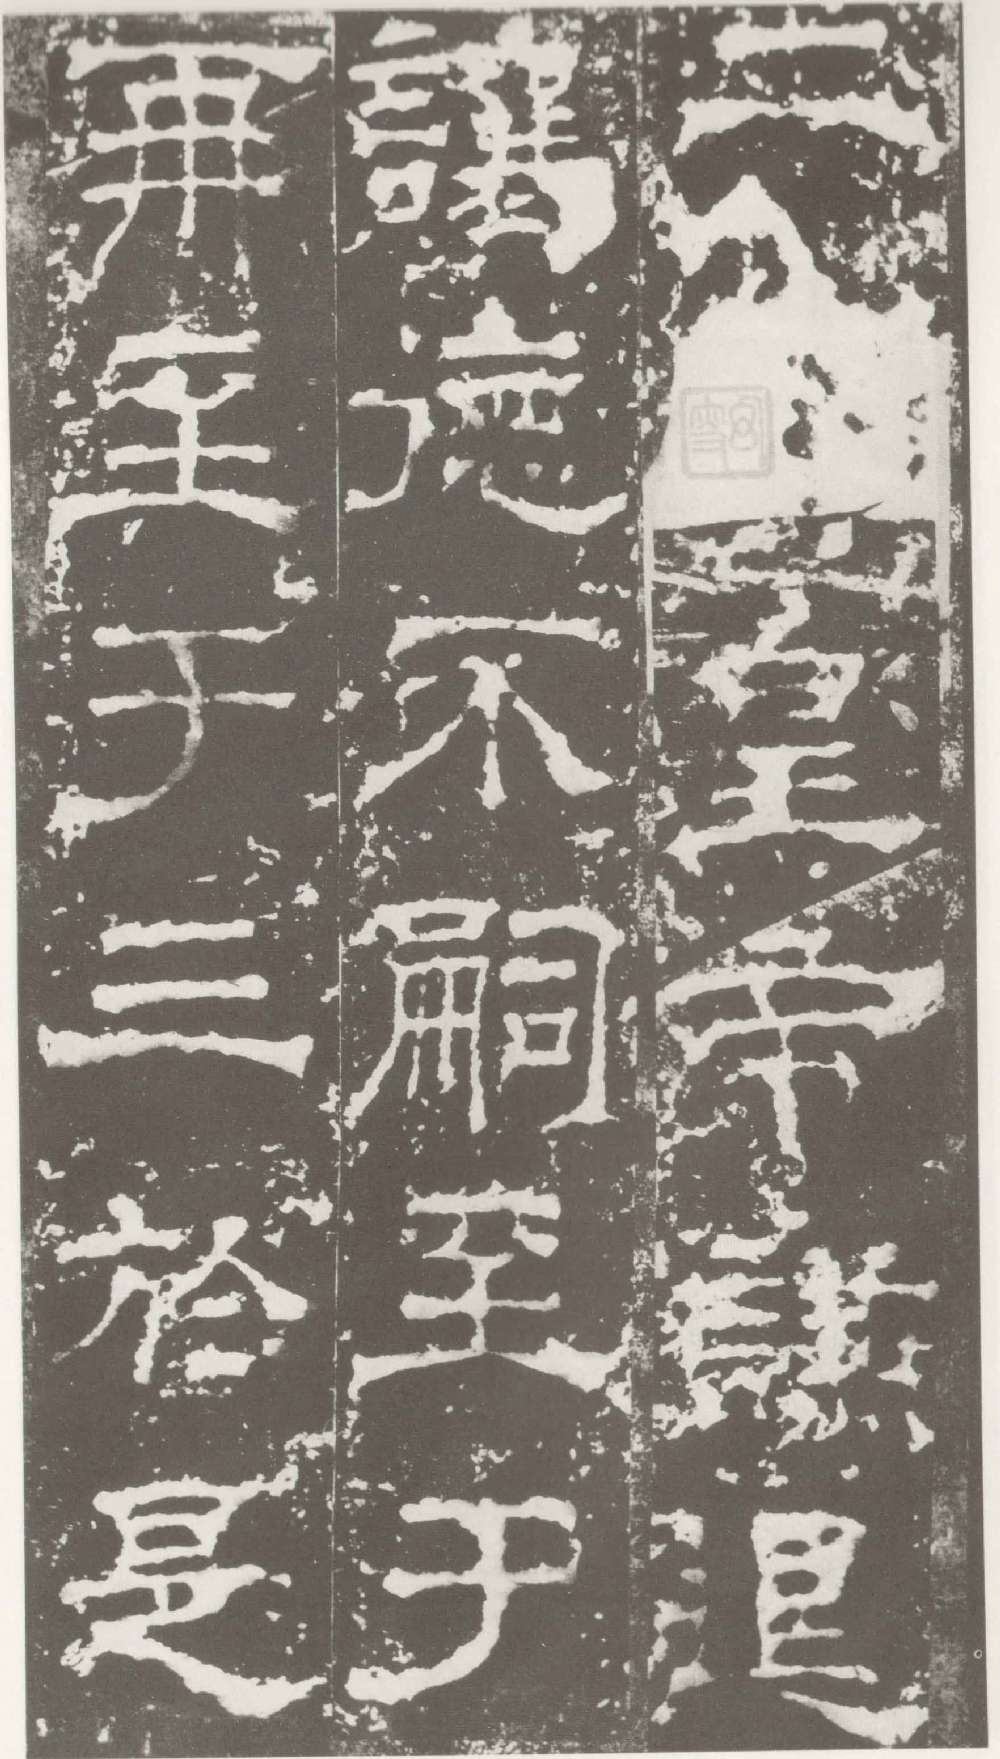 皇帝謙退
讓德不嗣至于
再至于三於是